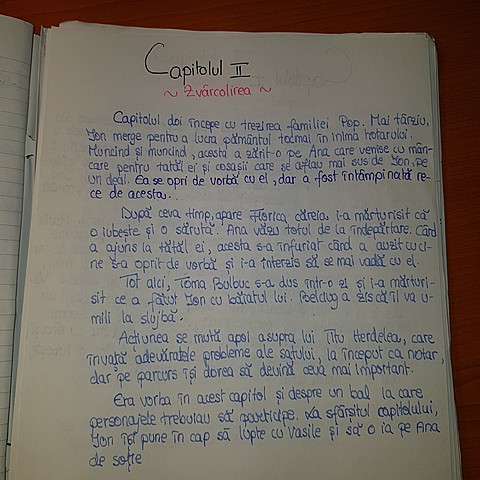 Capitolul II
~ Zvârcolirea ~
Capitolul doi începe cu trezirea familiei Pop. Mai târziu,
Ion merge pentru a lucra pământul tocmai în inima hotarului.
Muncind și muncind, acesta a zărit-o pe Ana care venise cu mân-
care pentru tatăl ei și cosașii care se aflau mai sus de Ion, pe
un deal. Ea se opri de vorbă cu el, dar a fost întâmpinată re-
ce de acesta.
După ceva timp, apare Florica, căreia i-a mărturisit că
o iubește și o sărută. Ana văzu totul de la îndepărtare. Când
a ajuns la tatăl ei, acesta s-a înfuriat când a auzit cu ci-
ne s-a oprit de vorbă și i-a interzis să se mai vadă cu el.
Tot aici, Toma Bulbuc s-a dus într-o zi și i-a mărturi-
sit ce a făcut Ion cu băiatul lui. Belciug a zis că îl va u-
mili la slujbă.
Acțiunea se mută apoi asupra lui Titu Herdelea, care
învață adevăratele probleme ale satului, la început ca notar,
dar pe parcurs își dorea să devină ceva mai important.
Era vorba în acest capitol și despre un bal la care
personajele trebuiau să participe. La sfârșitul capitolului,
Ion își pune în cap să lupte cu Vasile și să o ia pe Ana
de soție